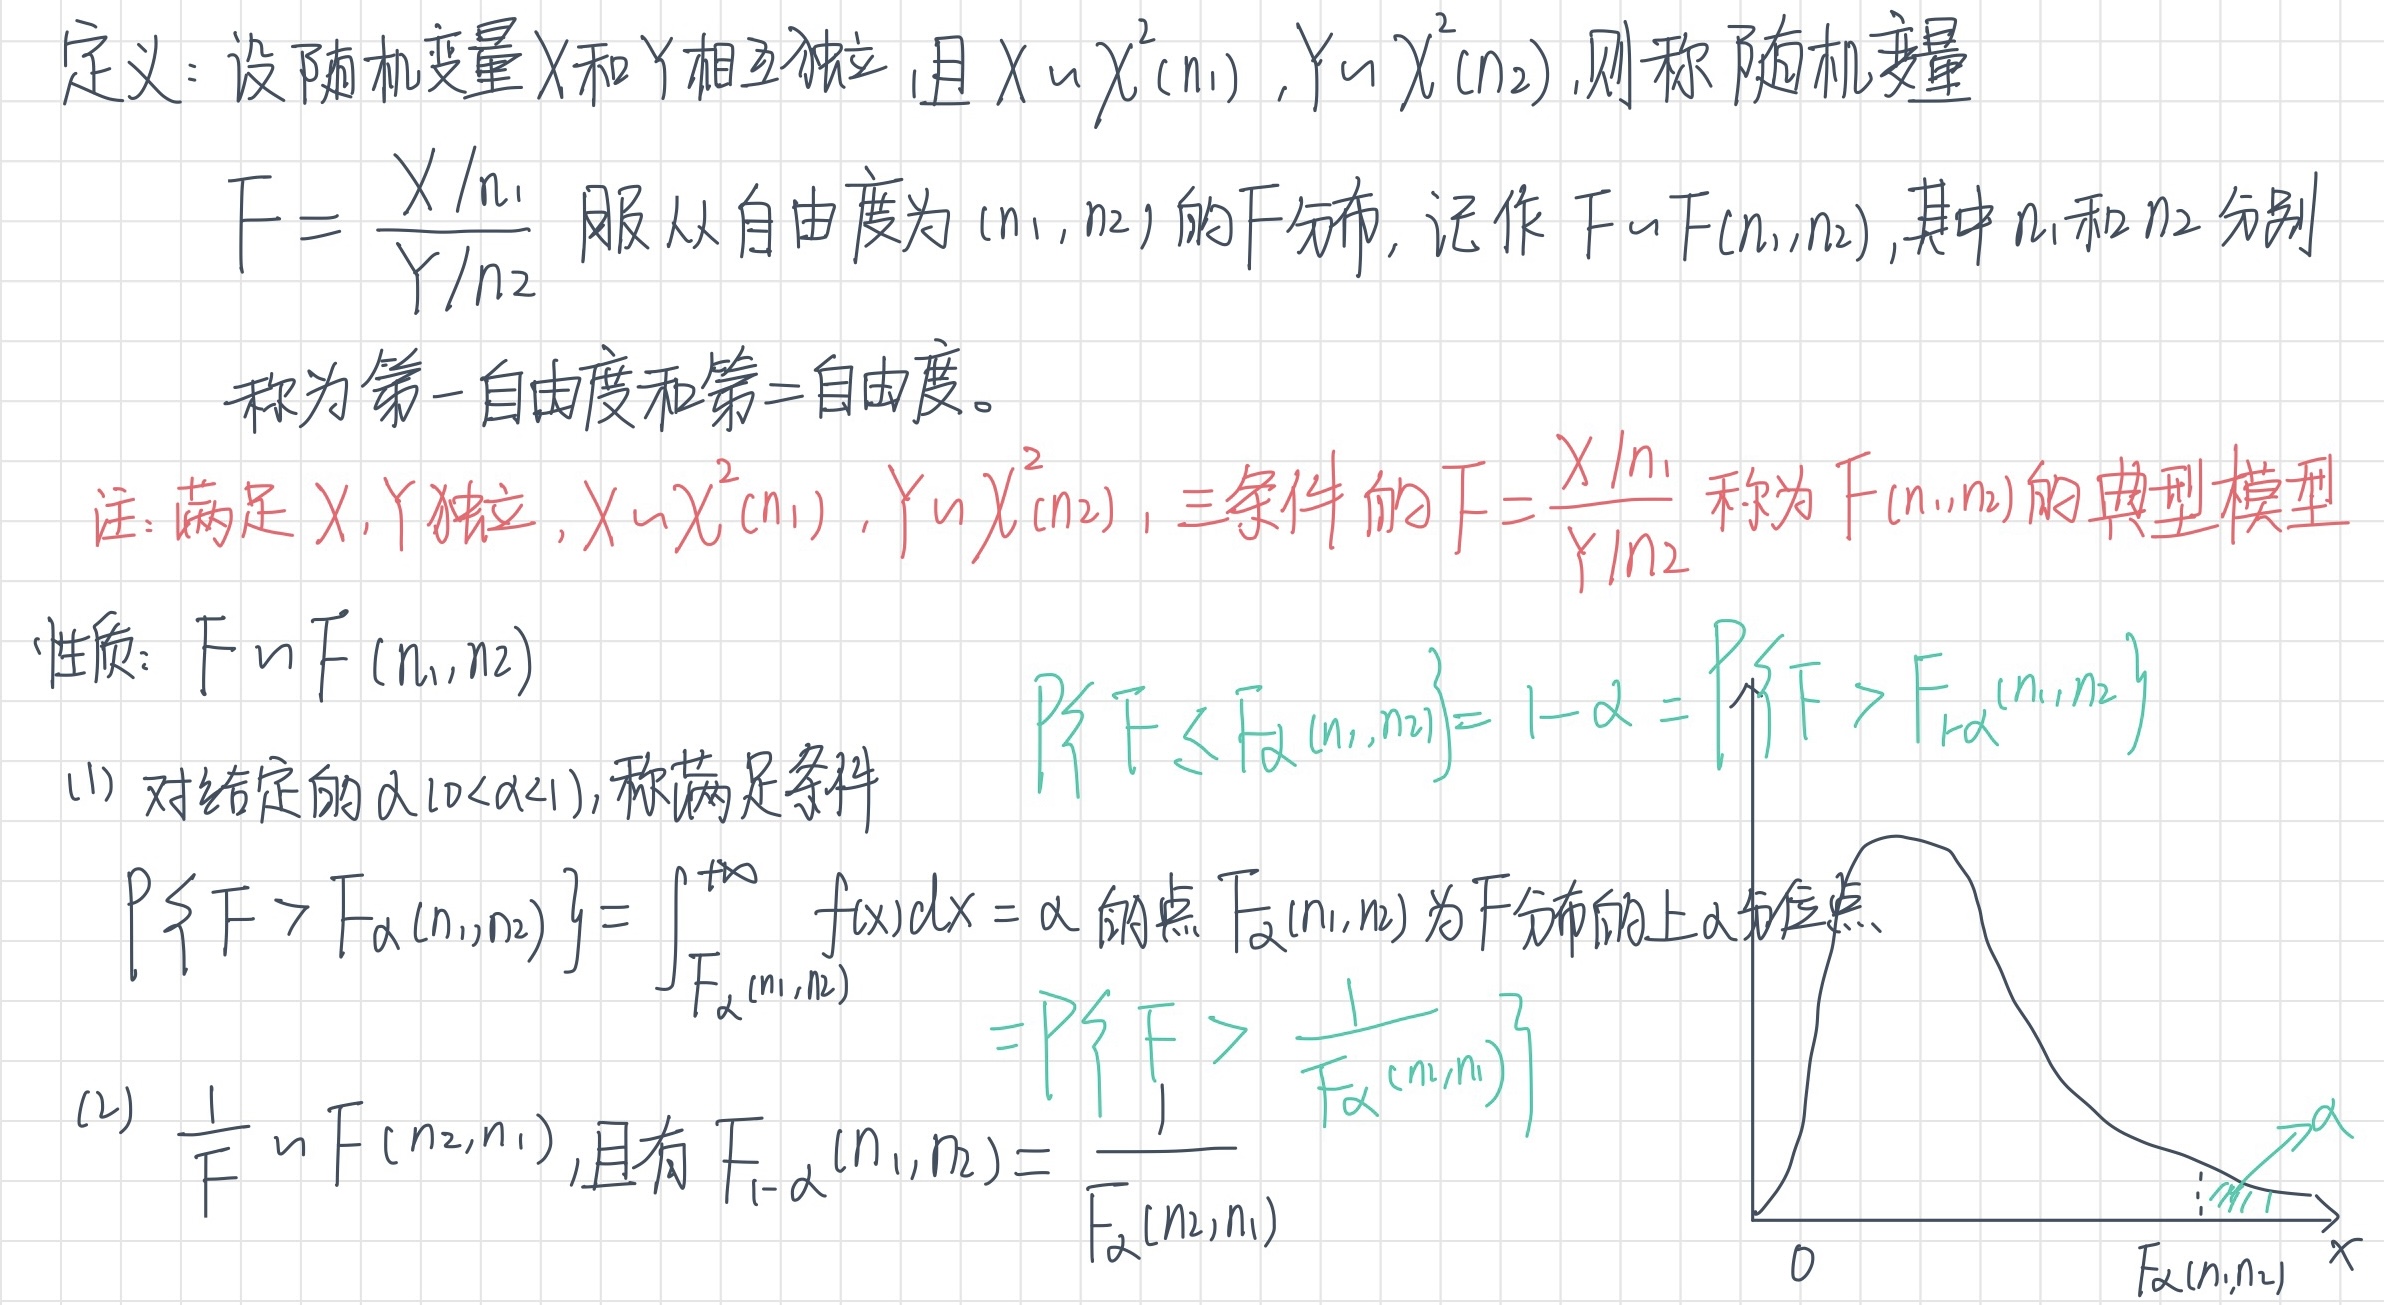 定义：设随机变量X和Y相互独立,且 X~χ²(n₁),Y~χ²(n₂),则称随机变量
F = (X/n₁)/(Y/n₂) 服从自由度为(n₁,n₂)的F分布,记作 F~F(n₁,n₂),其中n₁和n₂分别
称为第一自由度和第二自由度。
注:满足X,Y独立,X~χ²(n₁),Y~χ²(n₂),三条件的F = (X/n₁)/(Y/n₂) 称为F(n₁,n₂)的典型模型
性质: F~F(n₁,n₂)
P{F ≤ F_α(n₁,n₂)} = 1-α = P{F > F_{1-α}(n₁,n₂)}
(1) 对给定的α(0<α<1),称满足条件
P{F > F_α(n₁,n₂)} = ∫_{F_α(n₁,n₂)}^{+∞} f(x)dx = α 的点 F_α(n₁,n₂)为F分布的上α分位点、
= P{F > 1/F_α(n₂,n₁)}
(2) 1/F ~ F(n₂,n₁),且有 F_{1-α}(n₁,n₂) = 1/F_α(n₂,n₁)
α
0 F_α(n₁,n₂) x